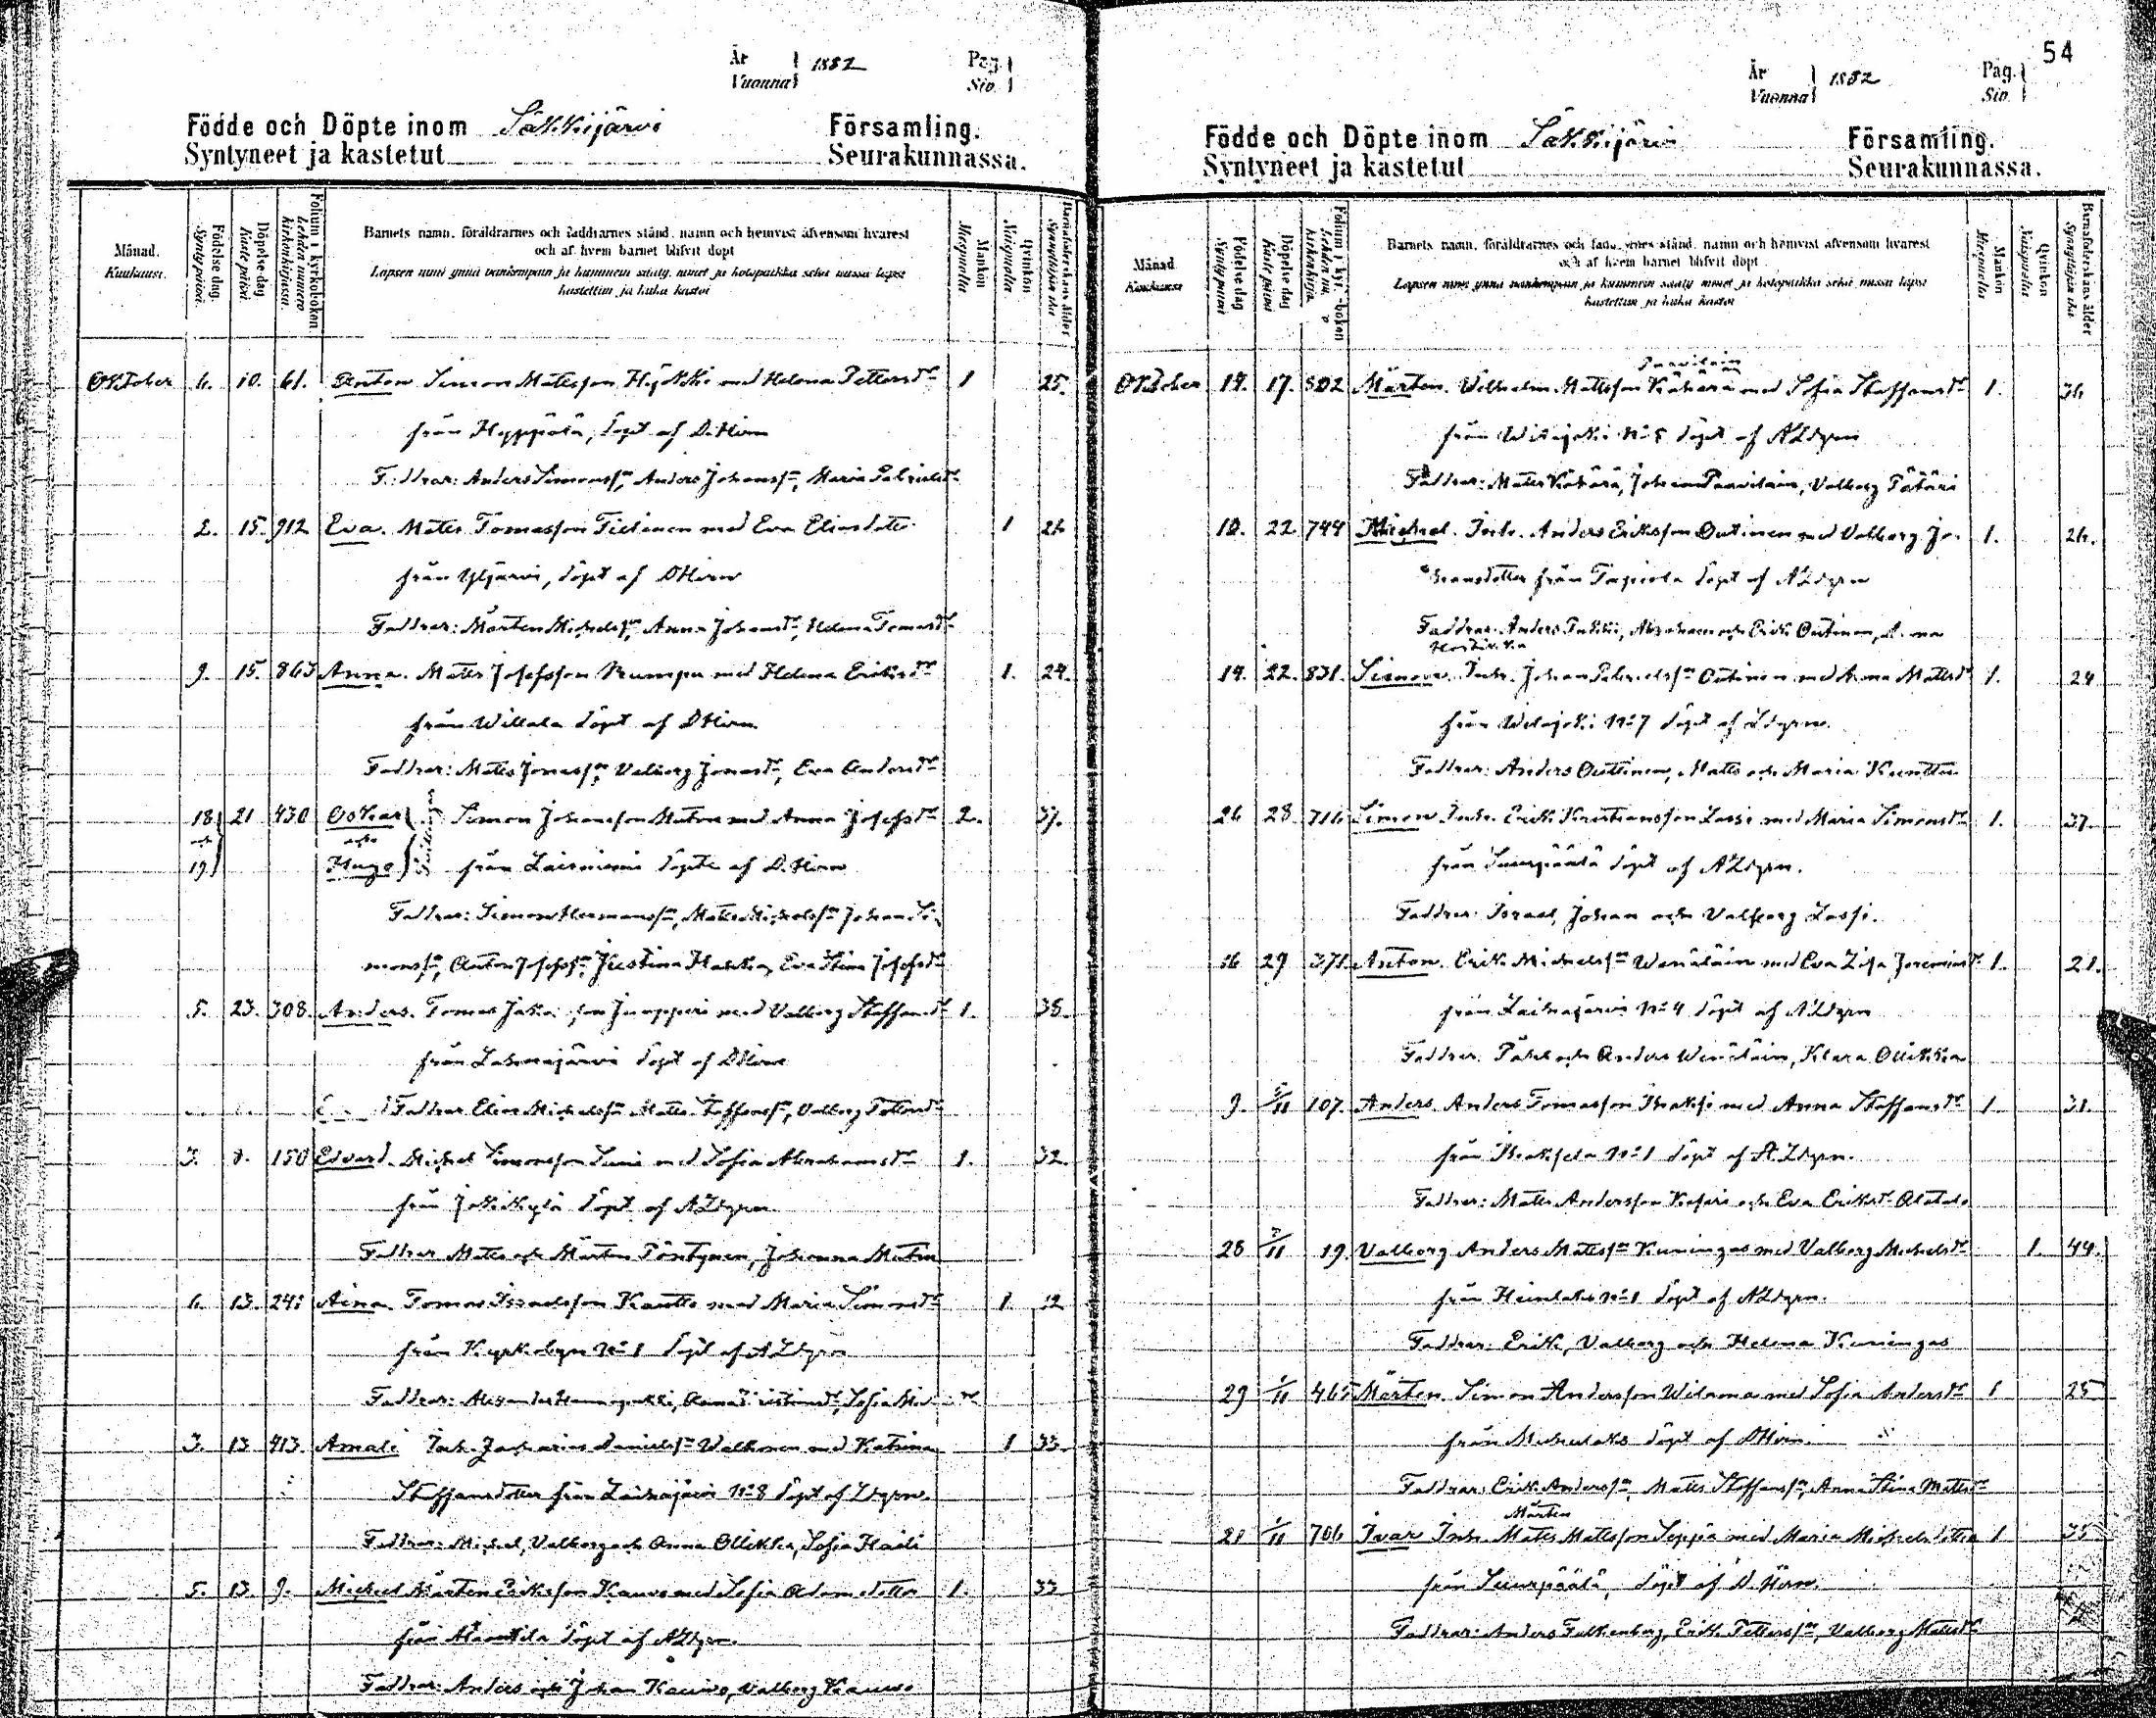 År Vuonna 1882 Pag. Siv.
Födde och Döpte inom Säkkijärvi Församling.
Syntyneet ja kastetut Seurakunnassa.
Månad. Kuukausi.
Födelse dag. Synty päivä.
Döpelse dag Kaste päivä.
Folium i kyrkoboken lehden numero kirkonkirjassa.
Barnets namn, föräldrarnes och faddrarnes stånd, namn och hemvist äfvensom hvarest
och af hvem barnet blifvit döpt
Lapsen nimi ynnä vanhempain ja kummein sääty, nimet ja kotopaikka sekä missä lapsi
kastettiin ja kuka kastoi
Mankön Miespuolia
Qvinkön Naispuolia
Barnaföderskans ålder Synnyttäjän ikä
Oktober 6. 10. 61. Anton Simon Matsson Hyökki med Helena Pettersdr 1 25.
från Hyppölä, döpt af D. Hirn
Faddrar: Anders Simonsn, Anders Johanssn, Maria Gabrielsdr
2. 15. 912 Eva. Matts Tomasson Tielinen med Eva Eliasdotter 1 26
från Yljärvi, döpt af D Hirn
Faddrar: Mårten Michelsn, Anna Johansdr, Helena Tomasdr
9. 15. 863 Anna. Matts Josefsson Rumpu med Helena Eriksdr 1. 24.
från Willala döpt af D Hirn
Faddrar: Matts Jonassn, Valborg Jonasdr, Eva Andersdr
18 21 430 Oskar Simon Johansson Muton med Anna Josefsdr 2. 37.
och och
19 Hugo från Lairniemi döpte af D. Hirn
Faddrar: Simon Hermanssn, Matts Michelssn Johan Si-
monssn, Anton Josefssn, Justina Eva Stina Josefsdr
5. 23. 308. Anders. Tomas Jakobsson Junpperi med Valborg Staffansdr 1. 38.
från Lahnajärvi döpt af D Hirn
Faddrar Elias Michelssn Matts Staffanssn, Valborg Pettersdr
3. 8. 150 Edvard. Michel Simonsson Suni med Sofia Abrahamsdr 1. 32.
från Jokikylä döpt af A Ldgren
Faddrar Matts och Mårten Pöntynen, Johanna Muton
6. 13. 241 Aina. Tomas Israelsson Kautto med Maria Simonsdr 1
från Kyrkobyn No 1 döpt af A Ldgren
Faddrar: Alexander
3. 13 413. Amali Inh. Zacharias Danielsn Walkonen med Katrina 1 33.
Staffansdotter från Laihajärvi No 8 döpt af Ldgren.
Faddrar: Michel, Valborg och Anna Ollikka, Sofia Haili
5. 13. 9. Michel Mårten Eriksson Kauvo med Sofia Adamsdotter 1. 33
från Alamtila döpt af A Ldgren.
Faddrar: Anders och Johan Kauvo, Valborg Kauvo
54
År Vuonna 1882 Pag. Siv.
Födde och Döpte inom Säkkijärvi Församling.
Syntyneet ja kastetut Seurakunnassa.
Månad Kuukausi
Födelse dag Synty päivä
Döpelse dag Kaste päivä
Barnets namn, föräldrarnes och faddrarnes stånd, namn och hemvist äfvensom hvarest
och af hvem barnet blifvit döpt
Lapsen nimi ynnä vanhempain ja kummein sääty, nimet ja kotopaikka sekä missä lapsi
kastettiin ja kuka kastoi
Mankön Miespuolia
Qvinkön Naispuolia
Barnaföderskans ålder Synnyttäjän ikä
Paavilain
Oktober 14. 17. 502 Mårten. Wilhelm Mattsson Kähärä med Sofia Staffansdr 1. 36
från Wilajoki No 5 döpt af A Ldgren
Faddrar: Matts Kähärä, Johan Paavilain, Valborg Pätäri
10. 22 744 Michael. Inh. Anders Eriksson Outinen med Valborg Jo- 1. 26.
hansdotter från Tapiola döpt af A Ldgren
Faddrar: Anders Abraham och Erik Outinen, Anna
14. 22. 831. Simon. Inh. Johan Gabrielsn Outinen med Anna Mattsdr 1. 24
från Wilajoki No 7 döpt af Ldgren.
Faddrar: Anders Outinen, Matts och Maria Kunttu
26 28. 716 Simon Inh. Erik Kristiansson Lassi med Maria Simonsdr 1. 37.
från Suurpäälä döpt af A Ldgren.
Faddrar: Israel, Johan och Valborg Lassi.
16 29 371. Anton. Erik Michelsn Wenäläin med Eva Lisa Jeremiasdr 1. 21.
från Laihajärvi No 4 döpt af A Ldgren
Faddrar: Påhl och Anders Wenäläin, Klara Ollikka
9. 107. Anders. Anders Tomasson Braksi med Anna Staffansdr 1 31.
från Braksela No 1 döpt af A. Ldgren.
Faddrar: Matts Andersson och Eva Eriksdr Alatalo
28 19. Valborg Anders Mattssn Kuningas med Valborg Michelsdr 1. 44.
från Heinlaks No 1 döpt af A Ldgren.
Faddrar: Erik, Valborg och Helena Kuningas
29 1/11 465 Mårten. Simon Andersson Wilama med Sofia Andersdr 1 25
från Michelaks döpt af D Hirn.
Faddrar: Erik Anderssn, Matts Staffanssn, Anna Stina Mattsdr
Mårten
21 1/11 706 Ivar Inh. Matts Mattsson Seppä med Maria Michelsdotter 1 35
från Suurpäälä, döpt af D. Hirn.
Faddrar: Anders Falkenberg, Erik Petterssn, Valborg Mattsdr